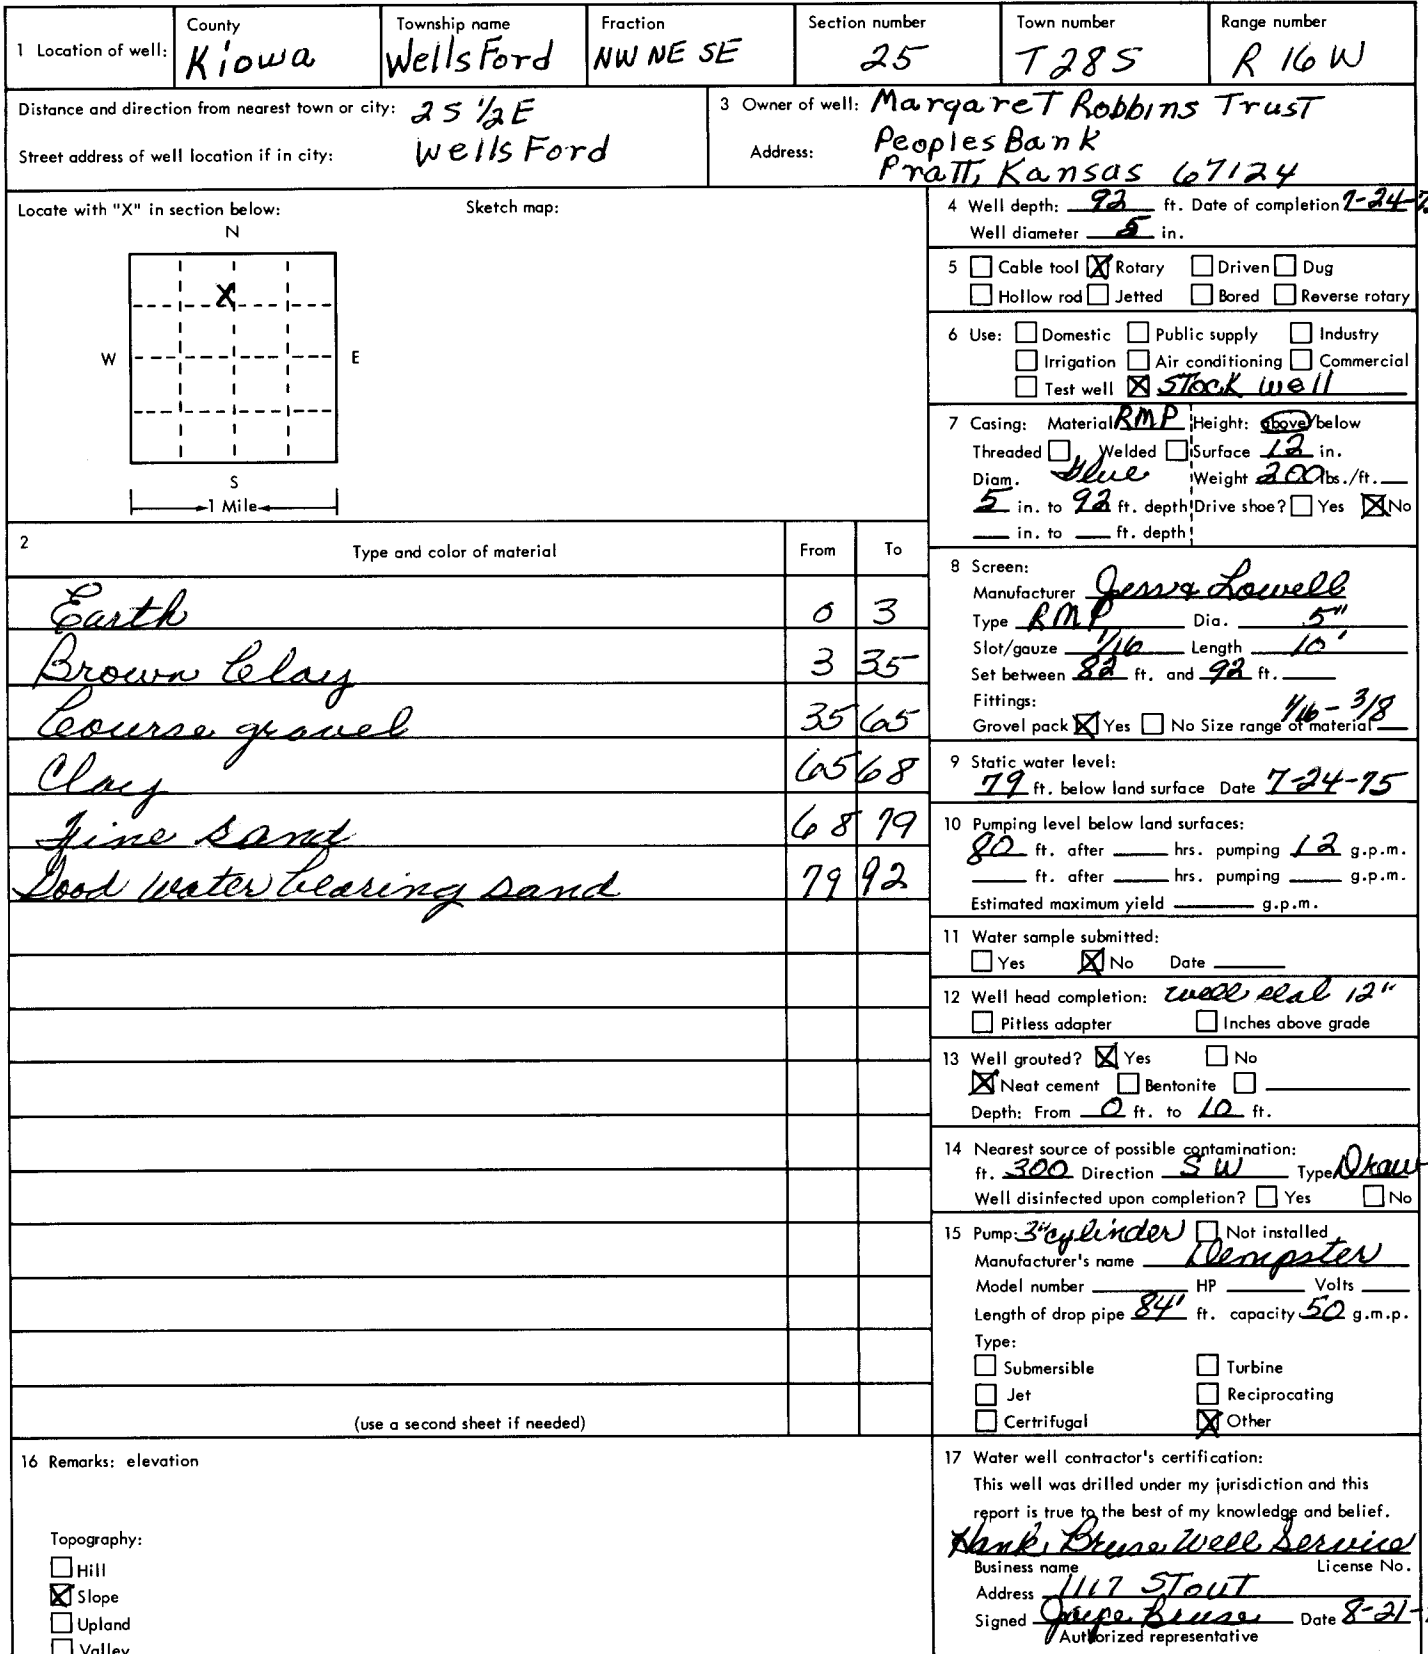 1 Location of well: County Kiowa Township name WellsFord Fraction NW NE SE Section number 25 Town number T28S Range number R 16 W
Distance and direction from nearest town or city: 2S ½E
Street address of well location if in city: WellsFord
3 Owner of well: Margaret Robbins Trust
Address: Peoples Bank
Pratt, Kansas 67124
Locate with "X" in section below: Sketch map:
N
X
W E
S
1 Mile
2 Type and color of material From To
Earth 0 3
Brown Clay 3 35
Course gravel 35 65
Clay 65 68
Fine sand 68 79
Good water bearing sand 79 92
(use a second sheet if needed)
4 Well depth: 92 ft. Date of completion 7-24-
Well diameter 5 in.
5 Cable tool X Rotary Driven Dug
Hollow rod Jetted Bored Reverse rotary
6 Use: Domestic Public supply Industry
Irrigation Air conditioning Commercial
Test well X Stock well
7 Casing: Material RMP Height: above/below
Threaded Welded Surface 12 in.
Diam. Glue Weight 200 lbs./ft.
5 in. to 92 ft. depth Drive shoe? Yes X No
in. to ft. depth
8 Screen:
Manufacturer Lowell
Type RMP Dia. 5"
Slot/gauze 1/16 Length 10'
Set between 82 ft. and 92 ft.
Fittings: 1/16 - 3/8
Grovel pack X Yes No Size range of material
9 Static water level:
79 ft. below land surface Date 7-24-75
10 Pumping level below land surfaces:
80 ft. after hrs. pumping 12 g.p.m.
ft. after hrs. pumping g.p.m.
Estimated maximum yield g.p.m.
11 Water sample submitted:
Yes X No Date
12 Well head completion: well seal 12"
Pitless adapter Inches above grade
13 Well grouted? X Yes No
X Neat cement Bentonite
Depth: From 0 ft. to 10 ft.
14 Nearest source of possible contamination:
ft. 300 Direction SW Type Draw
Well disinfected upon completion? Yes No
15 Pump: 3" cylinder Not installed
Manufacturer's name Dempster
Model number HP Volts
Length of drop pipe 84' ft. capacity 50 g.m.p.
Type:
Submersible Turbine
Jet Reciprocating
Certrifugal X Other
16 Remarks: elevation
Topography:
Hill
X Slope
Upland
Valley
17 Water well contractor's certification:
This well was drilled under my jurisdiction and this
report is true to the best of my knowledge and belief.
Hank Bruse Well Service
Business name License No.
Address 1117 Stout
Signed Bruse Date 8-21-
Authorized representative